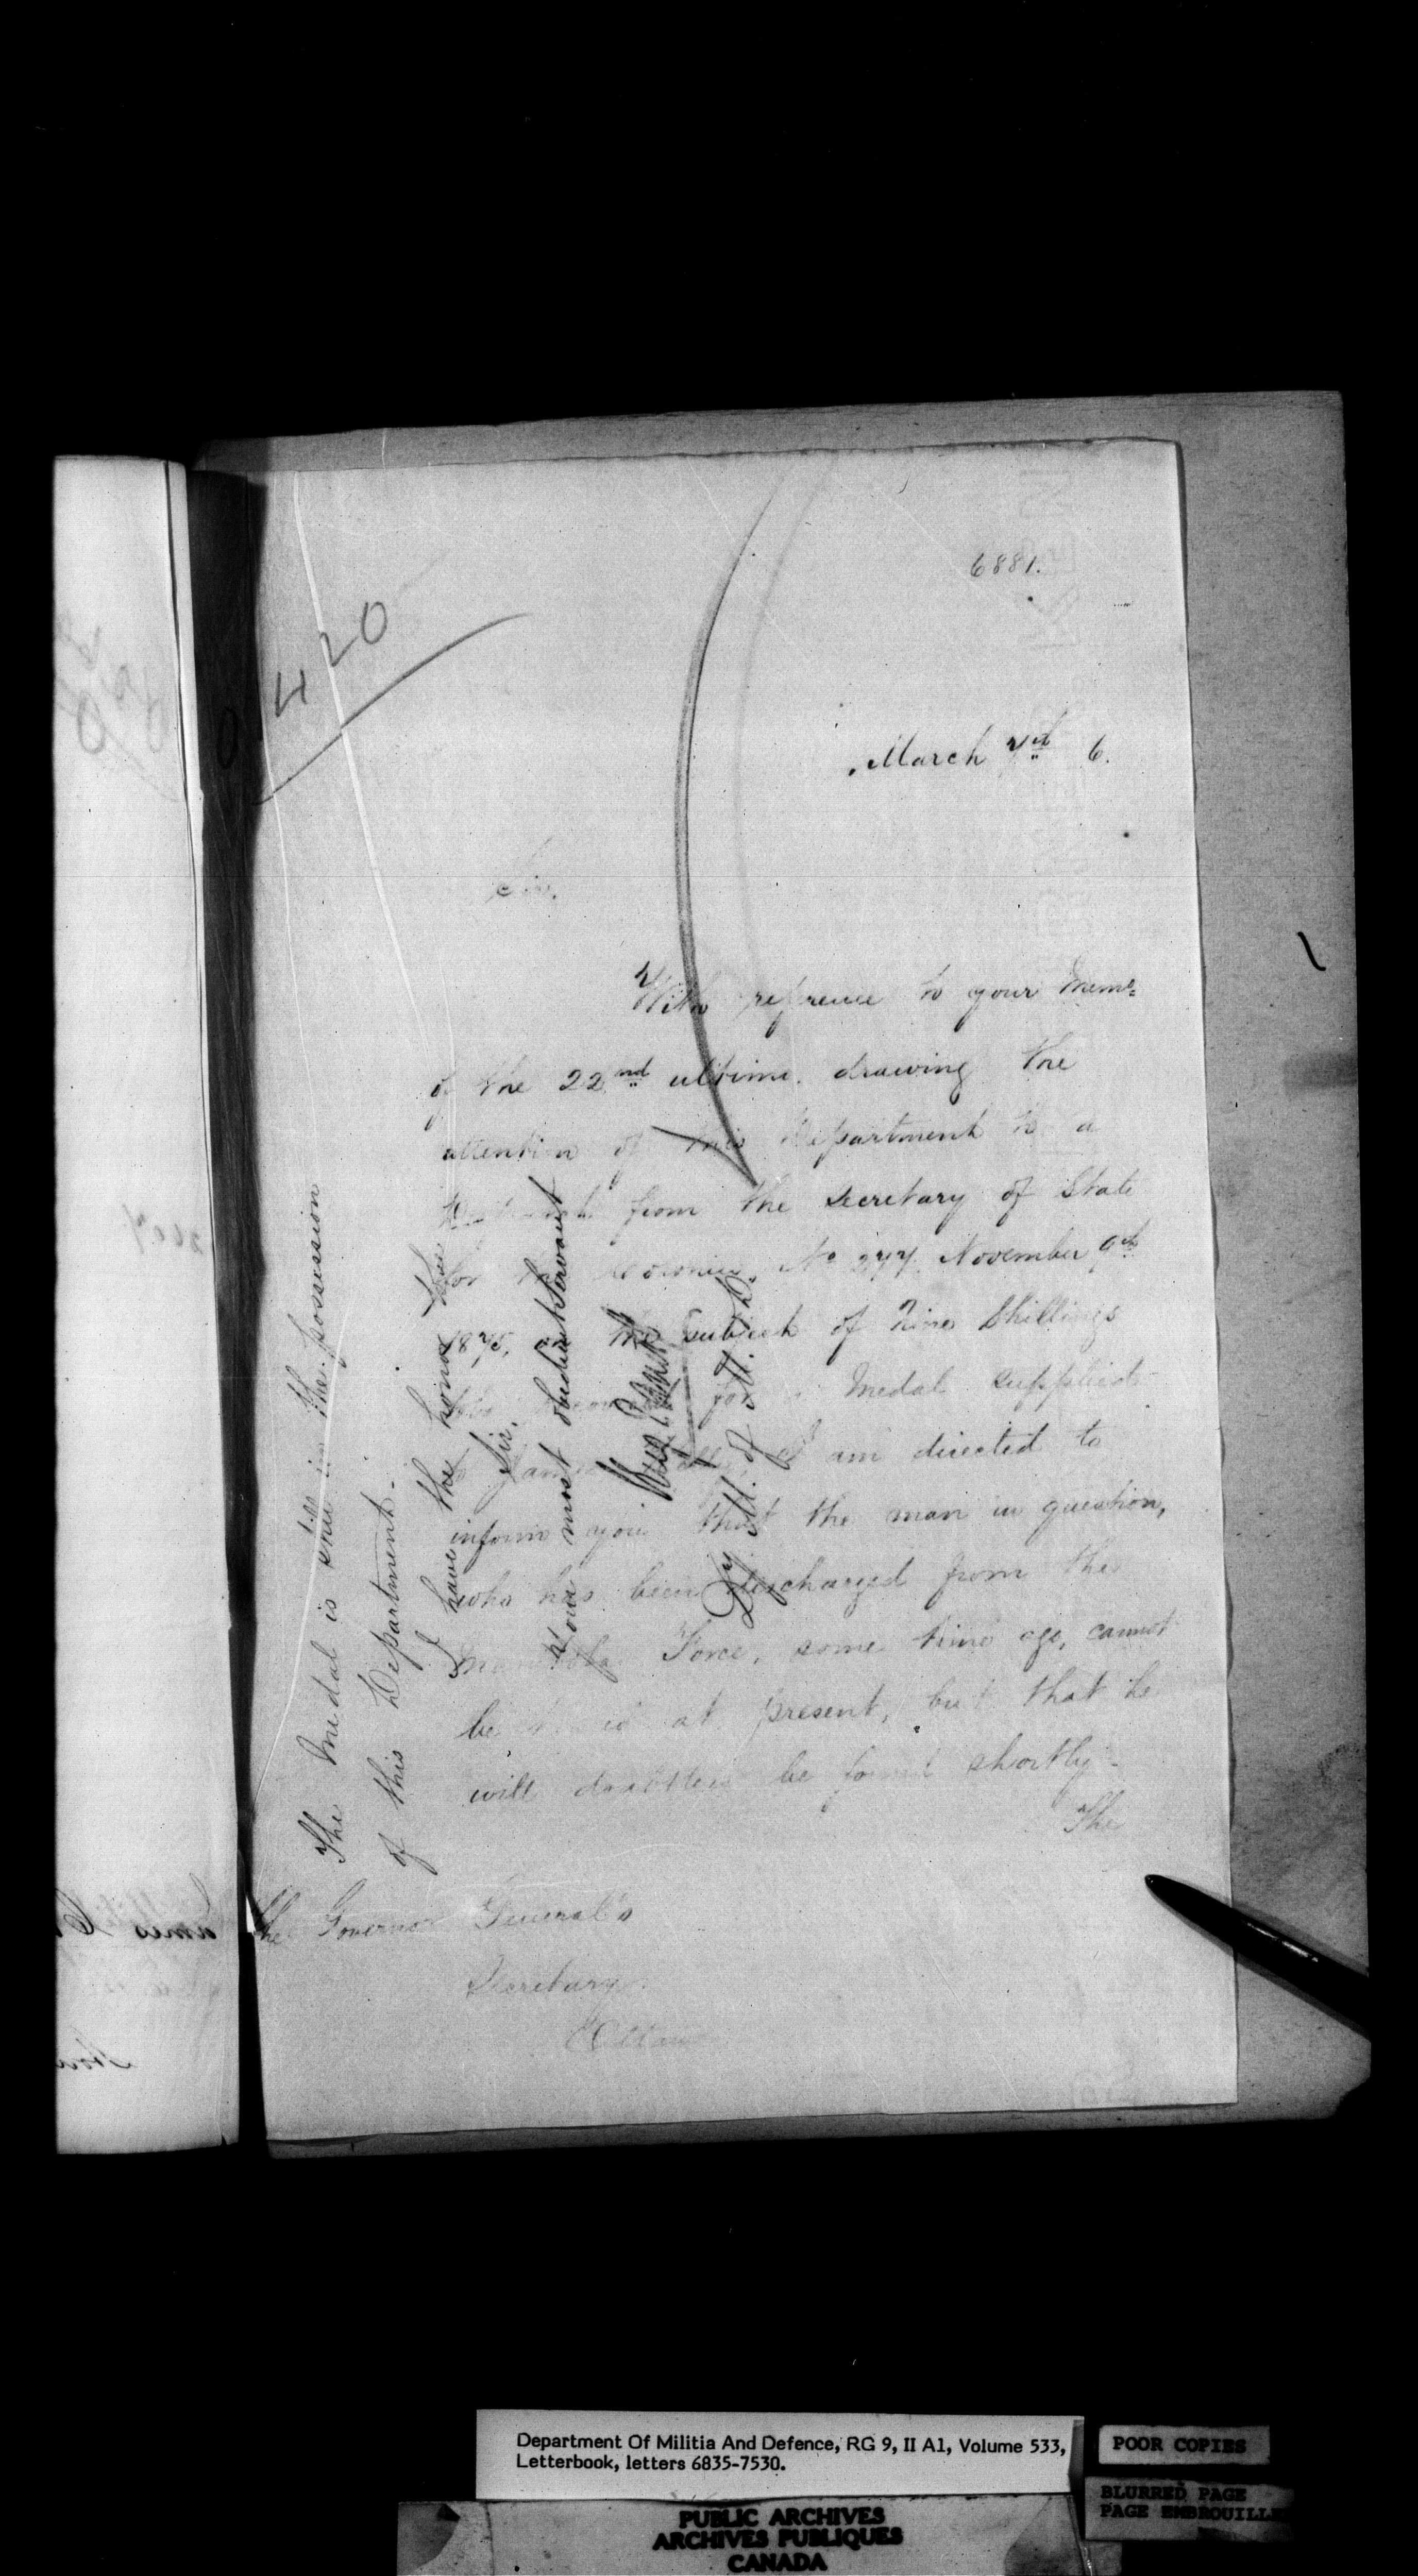 6881.
420
March 7th 6.
Sir.
With refrence to your Memo
of the 22nd ultimo. drawing the
attention of this Department to a
from the Secretary of State
for the No 277. November 9th
1875, the subject of Nine Shillings
for a Medal supplied
to James I am directed to
inform you that the man in question,
who has been discharged from the
Manitoba Force, some time ago, cannot
be at present, but that he
will doubtless be found shortly -
The
The Governor General's
Secretary
Ottawa
The Medal is still in the possession
of this Department -
I have the honor
Sir,
Your most obedient Servant
Dy M. of M. & D.
Department Of Militia And Defence, RG 9, II A1, Volume 533,
Letterbook, letters 6835-7530.
POOR COPIES
BLURRED PAGE
PAGE EMBROUILLE
PUBLIC ARCHIVES
ARCHIVES PUBLIQUES
CANADA